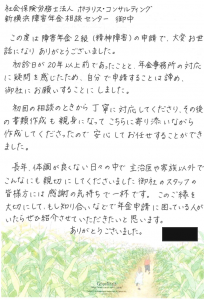 社会保険労務士法人 ポラリス・コンサルティング
新横浜障害年金相談センター 御中
この度は障害年金2級(精神障害)の申請で、大変お世
話になりありがとうございました。
初診日が20年以上前であったことと、年金事務所の対応
に疑問を感じたため、自分で申請することは諦め、
御社にお願いすることにしました。
初回の相談のときから丁寧に対応してくださり、その後
の書類作成も親身になってこちらに寄り添いながら
作成してくださったので安心してお任せすることができ
ました。
長年、体調が良くない日々の中で主治医や家族以外で
こんなにも親切にしてくださいました御社のスタッフの
皆様方には感謝の気持ちで一杯です。このご縁を
大切にして、もし知り合いなどで年金申請に困っている人が
いたらぜひ紹介させていただきたいと思います。
ありがとうございました。